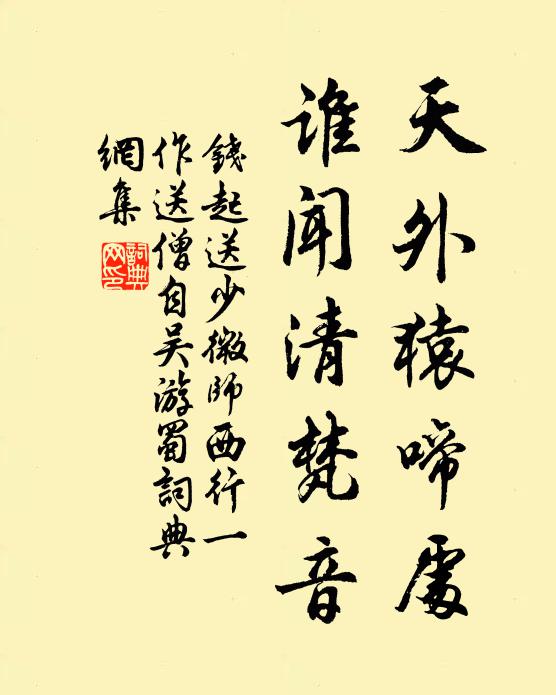 天外猿啼處
谁闻清梵音
錢起送少微師西行一
作送僧自吴游蜀詞典
網集
詞典网印